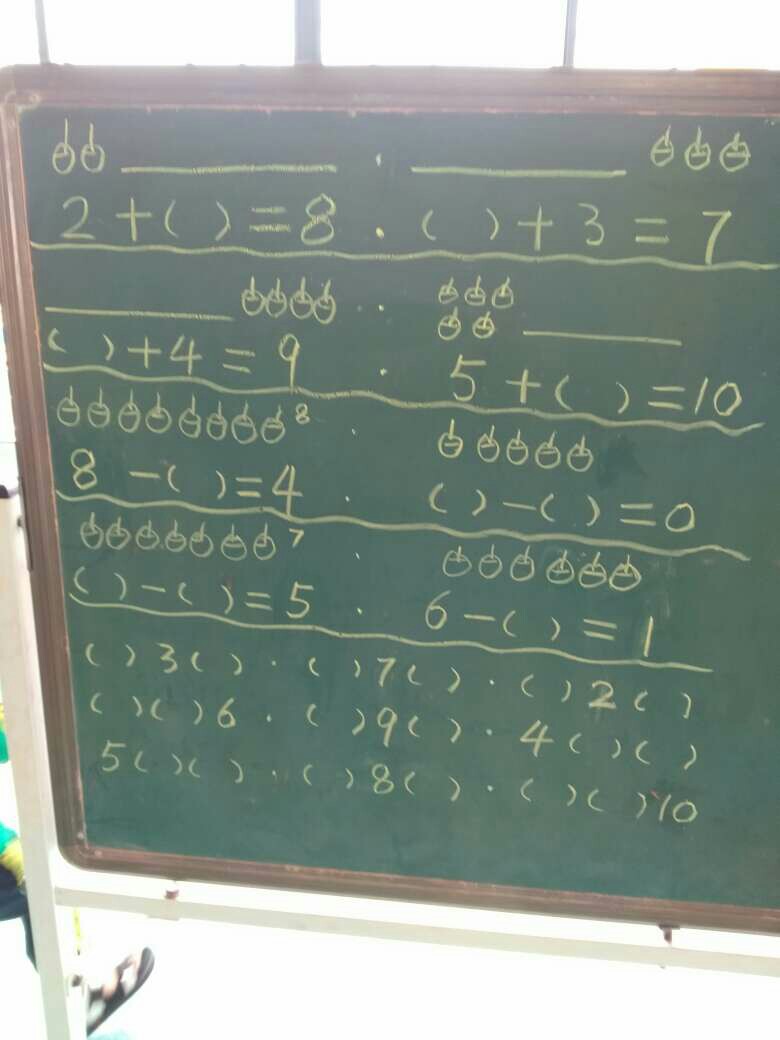 2 + ( ) = 8 . ( ) + 3 = 7
( ) + 4 = 9 . 5 + ( ) = 10
8
8 - ( ) = 4 . ( ) - ( ) = 0
7
( ) - ( ) = 5 . 6 - ( ) = 1
( ) 3 ( ) . ( ) 7 ( ) . ( ) 2 ( )
( ) ( ) 6 . ( ) 9 ( ) . 4 ( ) ( )
5 ( ) ( ) . ( ) 8 ( ) . ( ) ( ) 10